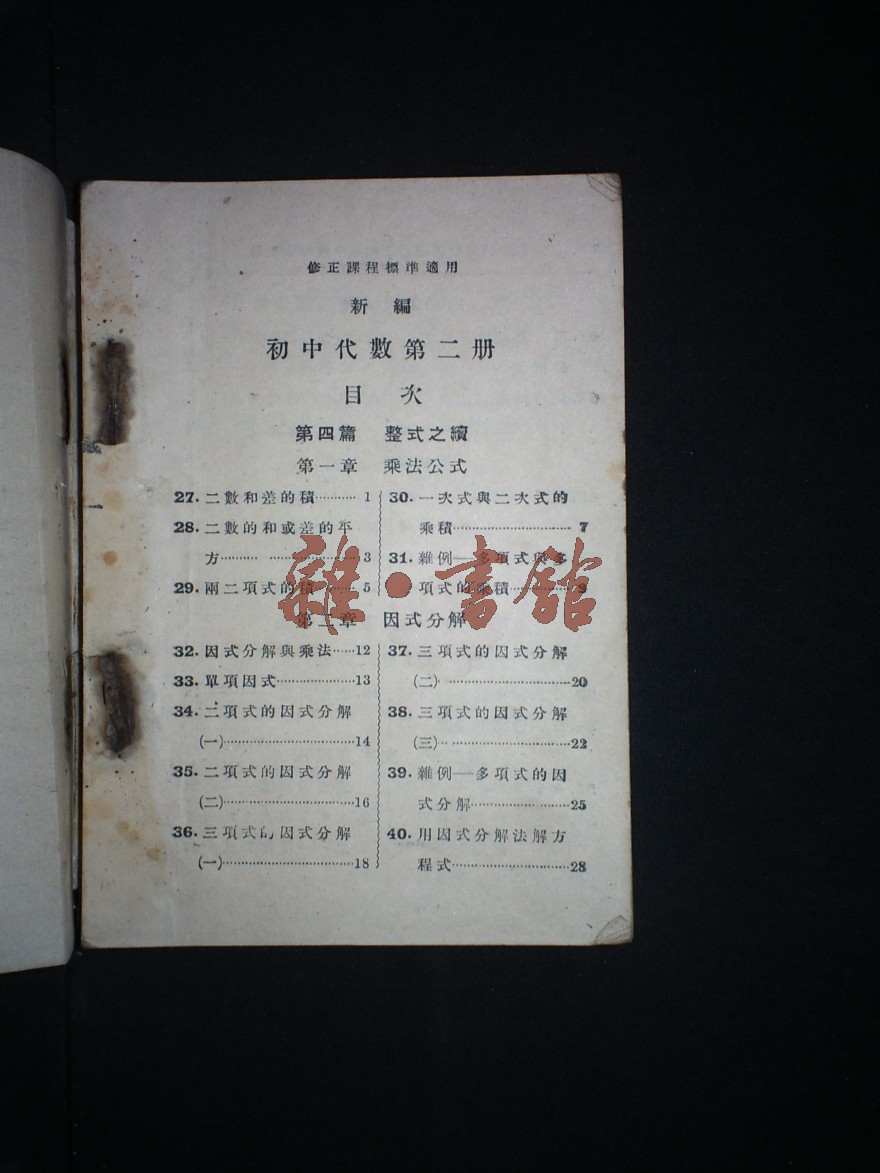 修正課程標準適用
新編
初中代數第二册
目次
第四篇 整式之續
第一章 乘法公式
27. 二數和差的積………… 1
28. 二數的和或差的平
方……………………3
29. 兩二項式的積……… 5
30. 一次式與二次式的
乘積……………………7
31. 雜例——多項式與多
項式的乘積…………9
第二章 因式分解
32. 因式分解與乘法……12
33. 單項因式………………13
34. 二項式的因式分解
(一)……………………14
35. 二項式的因式分解
(二)……………………16
36. 三項式的因式分解
(一)……………………18
37. 三項式的因式分解
(二)……………………20
38. 三項式的因式分解
(三)……………………22
39. 雜例——多項式的因
式分解…………………25
40. 用因式分解法解方
程式……………………28
雜·書館